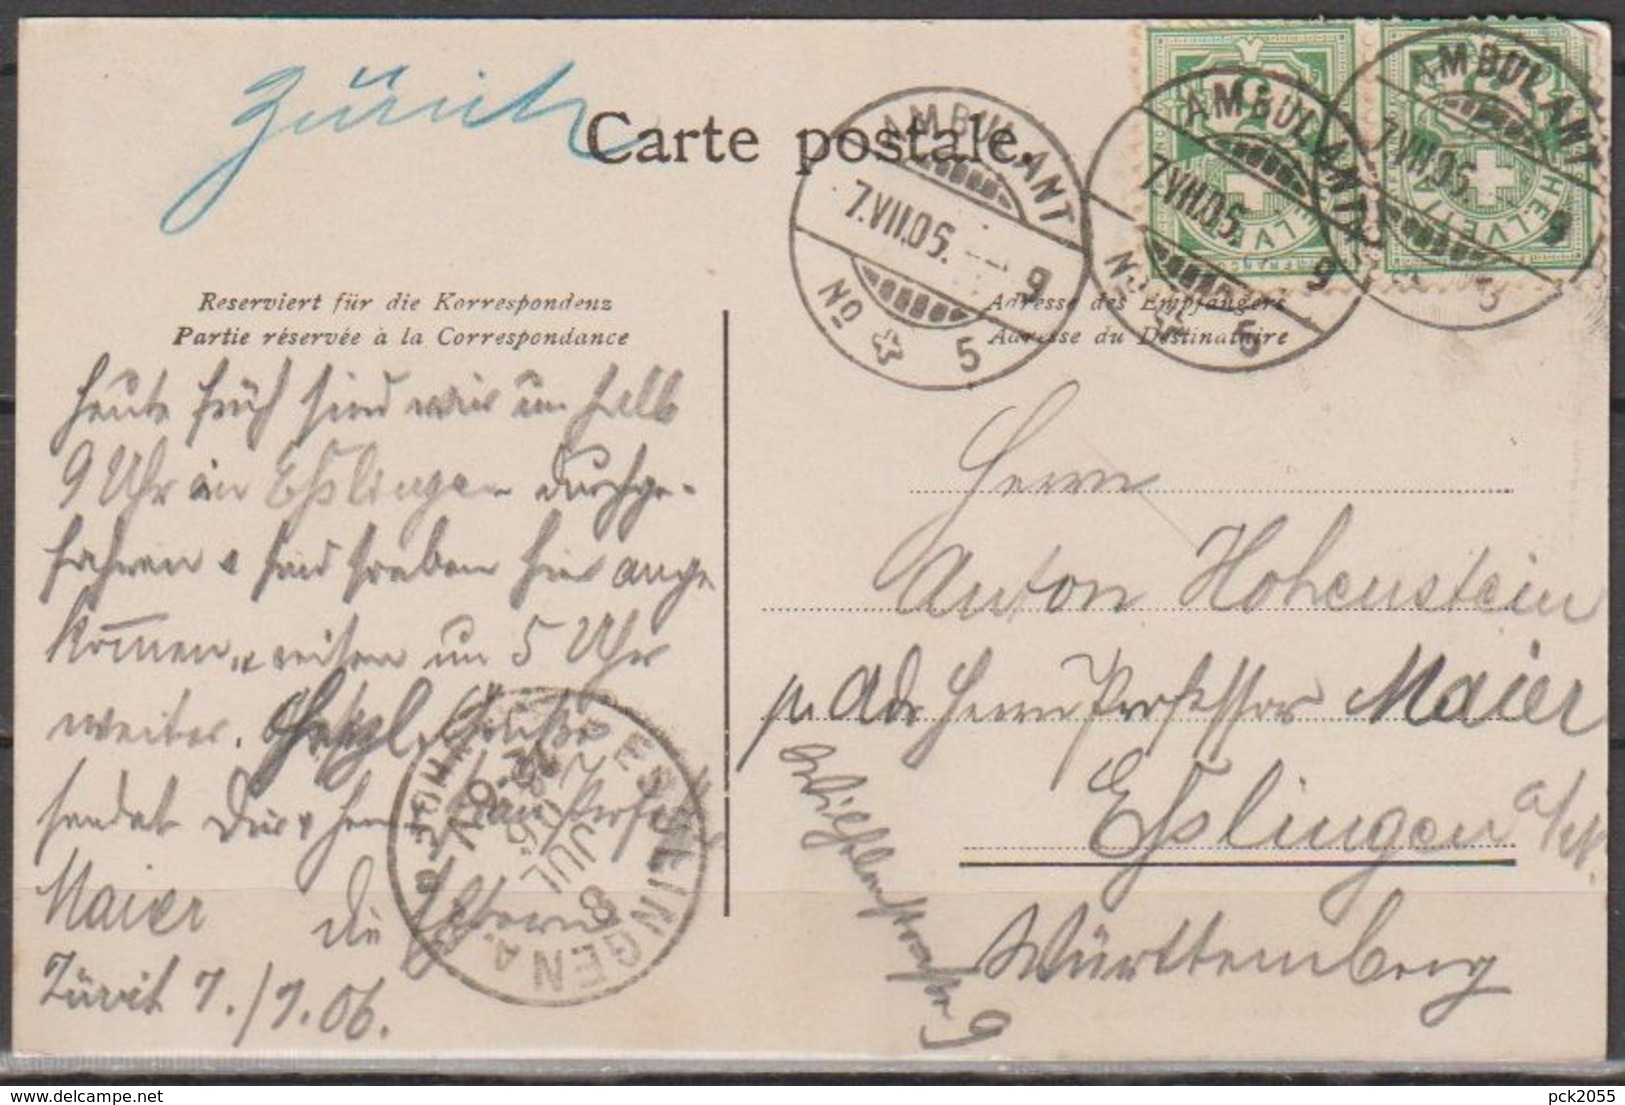 Zürich
Carte postale.
AMBULANT
7.VII.05. 9
No 5
AMBULANT
7.VII.05. 9
No 5
AMBULANT
7.VII.05. 9
5
HELVETIA
HELVETIA
Reserviert für die Korrespondenz
Partie réservée à la Correspondance
Adresse des Empfängers
Adresse du Destinataire
Heute früh sind wir um halb
9 Uhr in Eßlingen durchge-
fahren & sind soeben hier ange
kommen, reisen um 5 Uhr
weiter. Herzl. Grüße
sendet Dir & Herrn Professor
Maier die Eltern
Zürich 7./7.06.
ESSLINGEN A.
BAHNHOF
8 JUL 06.
Herrn
Anton Hohenstein
p. Adr Herrn Professor Maier
Eßlingen a/N.
Württemberg
9
delcampe.net
pck2055